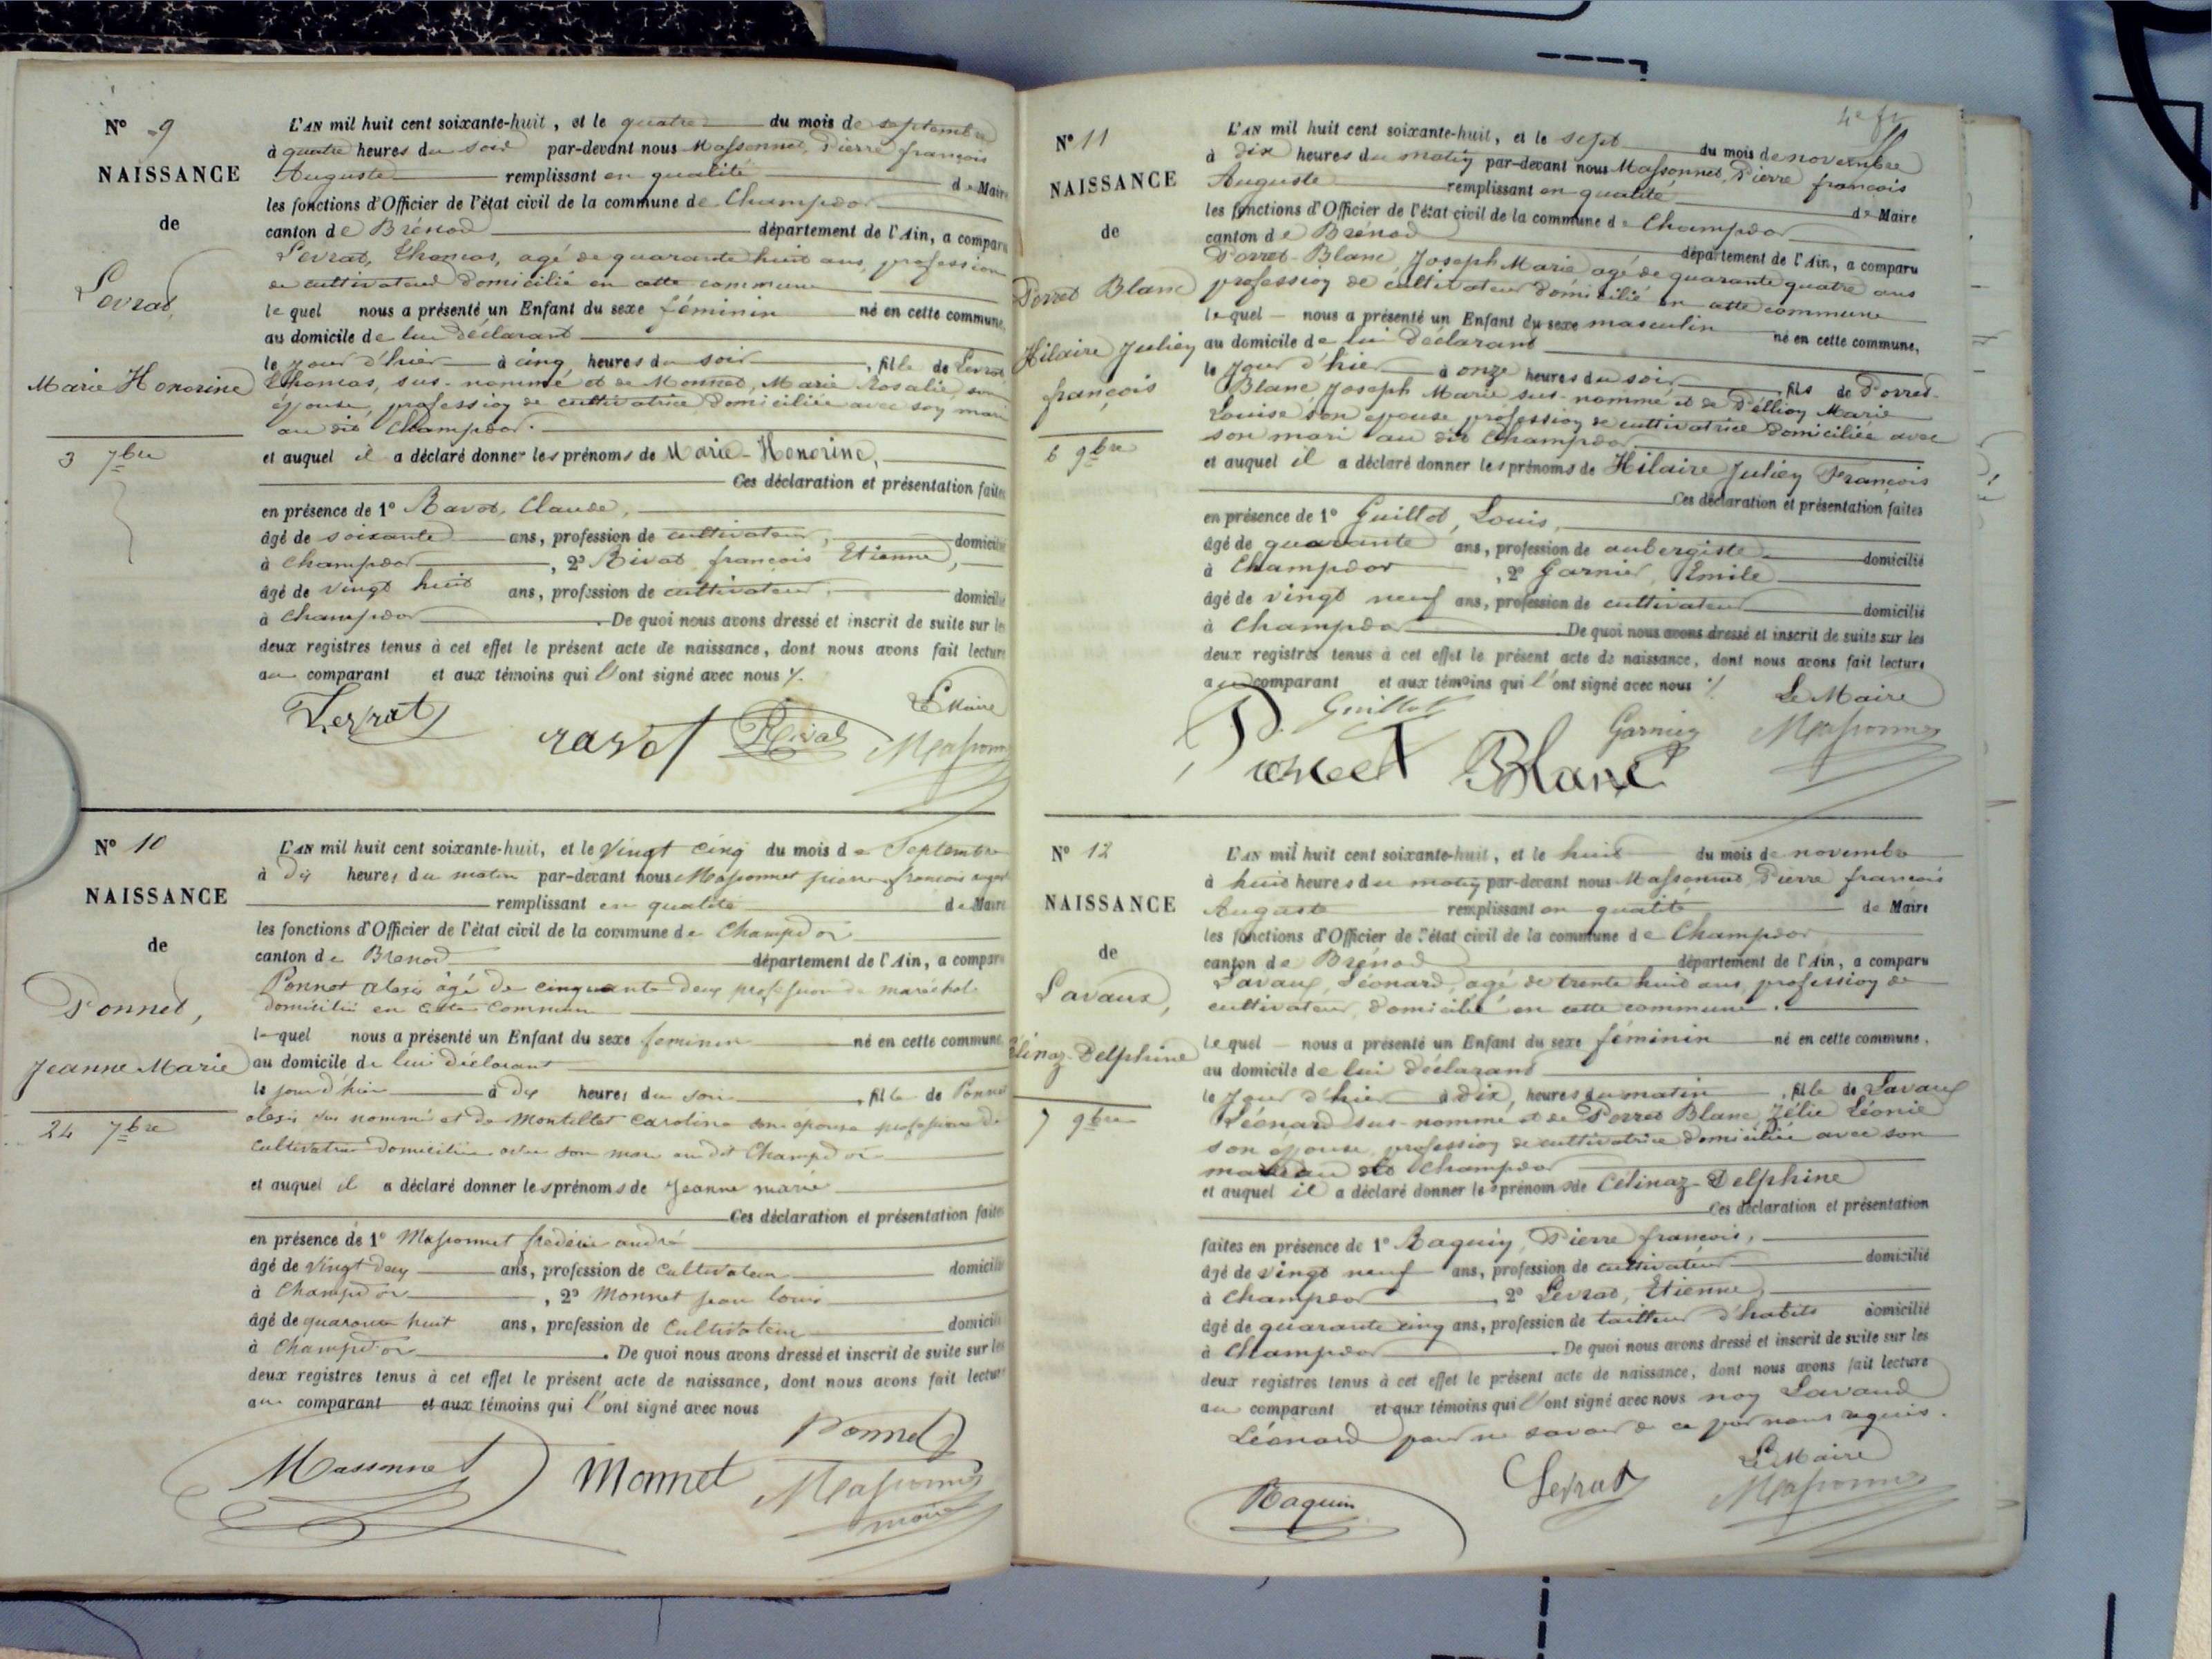 N° 9
NAISSANCE
de
Levrat,
Marie Honorine
3 7bre
L'AN mil huit cent soixante-huit, et le quatre du mois de septembre
à quatre heures du soir par-devant nous Massonnet, Pierre françois
Auguste remplissant en qualité de Maire
les fonctions d'Officier de l'état civil de la commune de Champdor
canton de Brénod département de l'Ain, a comparu
Levrat, Thomas, agé de quarante huit ans, profession
de cultivateur domicilié en cette commune
lequel nous a présenté un Enfant du sexe féminin né en cette commune,
au domicile de lui déclarant
le jour d'hier à cinq heures du soir, fille de Levrat
Thomas, sus-nommé et de Monnet, Marie Rosalie, son
épouse, profession de cultivatrice domiciliée avec son mari
au dit Champdor.
et auquel il a déclaré donner les prénoms de Marie-Honorine,
Ces déclaration et présentation faites
en présence de 1° Ravot, Claude,
âgé de soixante ans, profession de cultivateur, domicilié
à Champdor, 2° Rivat françois Etienne,
âgé de vingt huit ans, profession de cultivateur, domicilié
à Champdor. De quoi nous avons dressé et inscrit de suite sur les
deux registres tenus à cet effet le présent acte de naissance, dont nous avons fait lecture
au comparant et aux témoins qui l'ont signé avec nous /.
Levrat ravot Rivat Le Maire
Massonnet
N° 10
NAISSANCE
de
Ponnet,
Jeanne Marie
24 7bre
L'AN mil huit cent soixante-huit, et le Vingt cinq du mois de Septembre
à dix heures du matin par-devant nous Massonnet pierre françois august
remplissant en qualité de Maire
les fonctions d'Officier de l'état civil de la commune de Champdor
canton de Brenod département de l'Ain, a comparu
Ponnet alexis âgé de cinquante deux profession de maréchal
domicilié en cette commune
lequel nous a présenté un Enfant du sexe feminin né en cette commune
au domicile de lui déclarant
le jour d'hier à dix heures du soir, fille de Ponnet
alexis sus nommé et de Montillet Caroline son épouse profession de
cultivatrice domiciliée avec son mari au dit Champdor
et auquel il a déclaré donner les prénoms de Jeanne marie
Ces déclaration et présentation faites
en présence de 1° Massonnet frederic andré
âgé de vingt deux ans, profession de Cultivateur domicilié
à Champdor, 2° Monnet jean louis
âgé de quarante huit ans, profession de Cultivateur domicilié
à Champdor. De quoi nous avons dressé et inscrit de suite sur les
deux registres tenus à cet effet le présent acte de naissance, dont nous avons fait lecture
au comparant et aux témoins qui l'ont signé avec nous
Ponnet
Massonnet Monnet Massonnet
maire
N° 11
NAISSANCE
de
Porret Blanc
Hilaire Julien
françois
6 9bre
L'AN mil huit cent soixante-huit, et le sept du mois de novembre
à dix heures du matin par-devant nous Massonnet, Pierre françois
Auguste remplissant en qualité de Maire
les fonctions d'Officier de l'état civil de la commune de Champdor
canton de Brénod département de l'Ain, a comparu
Porret-Blanc, Joseph Marie agé de quarante quatre ans
profession de cultivateur domicilié en cette commune
lequel nous a présenté un Enfant du sexe masculin né en cette commune,
au domicile de lui déclarant
le jour d'hier à onze heures du soir, fils de Porret-
Blanc, Joseph Marie sus-nommé et de Péllion Marie
Louise son épouse profession de cultivatrice domiciliée avec
son mari au dit Champdor
et auquel il a déclaré donner les prénoms de Hilaire Julien François
Ces déclaration et présentation faites
en présence de 1° Guillot, Louis,
âgé de quarante ans, profession de aubergiste domicilié
à Champdor, 2° Garnier, Emile
âgé de vingt neuf ans, profession de cultivateur domicilié
à Champdor De quoi nous avons dressé et inscrit de suite sur les
deux registres tenus à cet effet le présent acte de naissance, dont nous avons fait lecture
au comparant et aux témoins qui l'ont signé avec nous /. Le Maire
Guillot Garnier Massonnet
Porret Blanc
N° 12
NAISSANCE
de
Lavaux,
Célinaz-Delphine
7 9bre
L'AN mil huit cent soixante-huit, et le huit du mois de novembre
à huit heures du matin par-devant nous Massonnet, Pierre françois
Auguste remplissant en qualité de Maire
les fonctions d'Officier de l'état civil de la commune de Champdor
canton de Brénod département de l'Ain, a comparu
Lavaux, Léonard, agé de trente huit ans, profession de
cultivateur, domicilié en cette commune.
lequel nous a présenté un Enfant du sexe féminin né en cette commune,
au domicile de lui déclarant
le jour d'hier à dix, heures du matin, fille de Lavaux
Léonard sus-nommé et de Porret Blanc, Zélie Léonie
son épouse, profession de cultivatrice domiciliée avec son
mari au dit Champdor
et auquel il a déclaré donner les prénoms de Célinaz-Delphine
Ces déclaration et présentation
faites en présence de 1° Raquin, Pierre françois,
âgé de vingt neuf ans, profession de cultivateur domicilié
à Champdor 2° Levrat, Etienne,
âgé de quarante cinq ans, profession de tailleur d'habits domicilié
à Champdor. De quoi nous avons dressé et inscrit de suite sur les
deux registres tenus à cet effet le présent acte de naissance, dont nous avons fait lecture
au comparant et aux témoins qui l'ont signé avec nous non Lavaux
Léonard pour ne savoir de ce par nous requis.
Le Maire
Raquin Levrat Massonnet